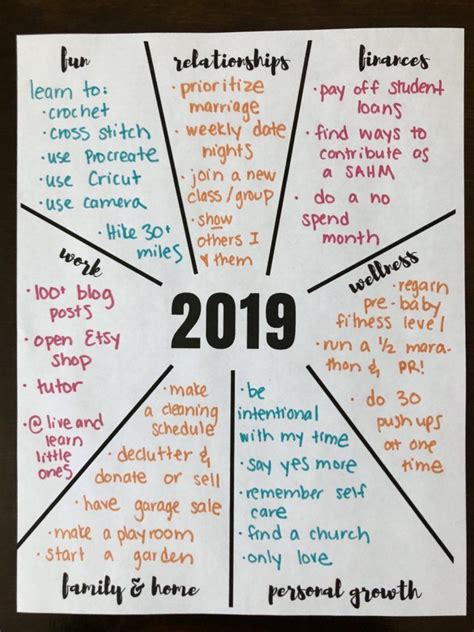 fun
learn to:
· crochet
· cross stitch
· use Procreate
· use Cricut
· use camera
· Hike 30+
miles
relationships
· prioritize
marriage
· weekly date
nights
· join a new
class/group
· show
others I
♥ them
finances
· pay off student
loans
· find ways to
contribute as
a SAHM
· do a no
spend
month
work
· 100+ blog
posts
· open Etsy
shop
· tutor
· @ live and
learn
little
ones
2019
wellness
· regain
pre-baby
fitness level
· run a 1/2 mara-
thon & PR!
· do 30
pushups
at one
time
· make
a cleaning
schedule
· declutter &
donate or sell
· have garage sale
· make a playroom
· start a garden
family & home
· be
intentional
with my time
· say yes more
· remember self
care
· find a church
· only love
personal growth